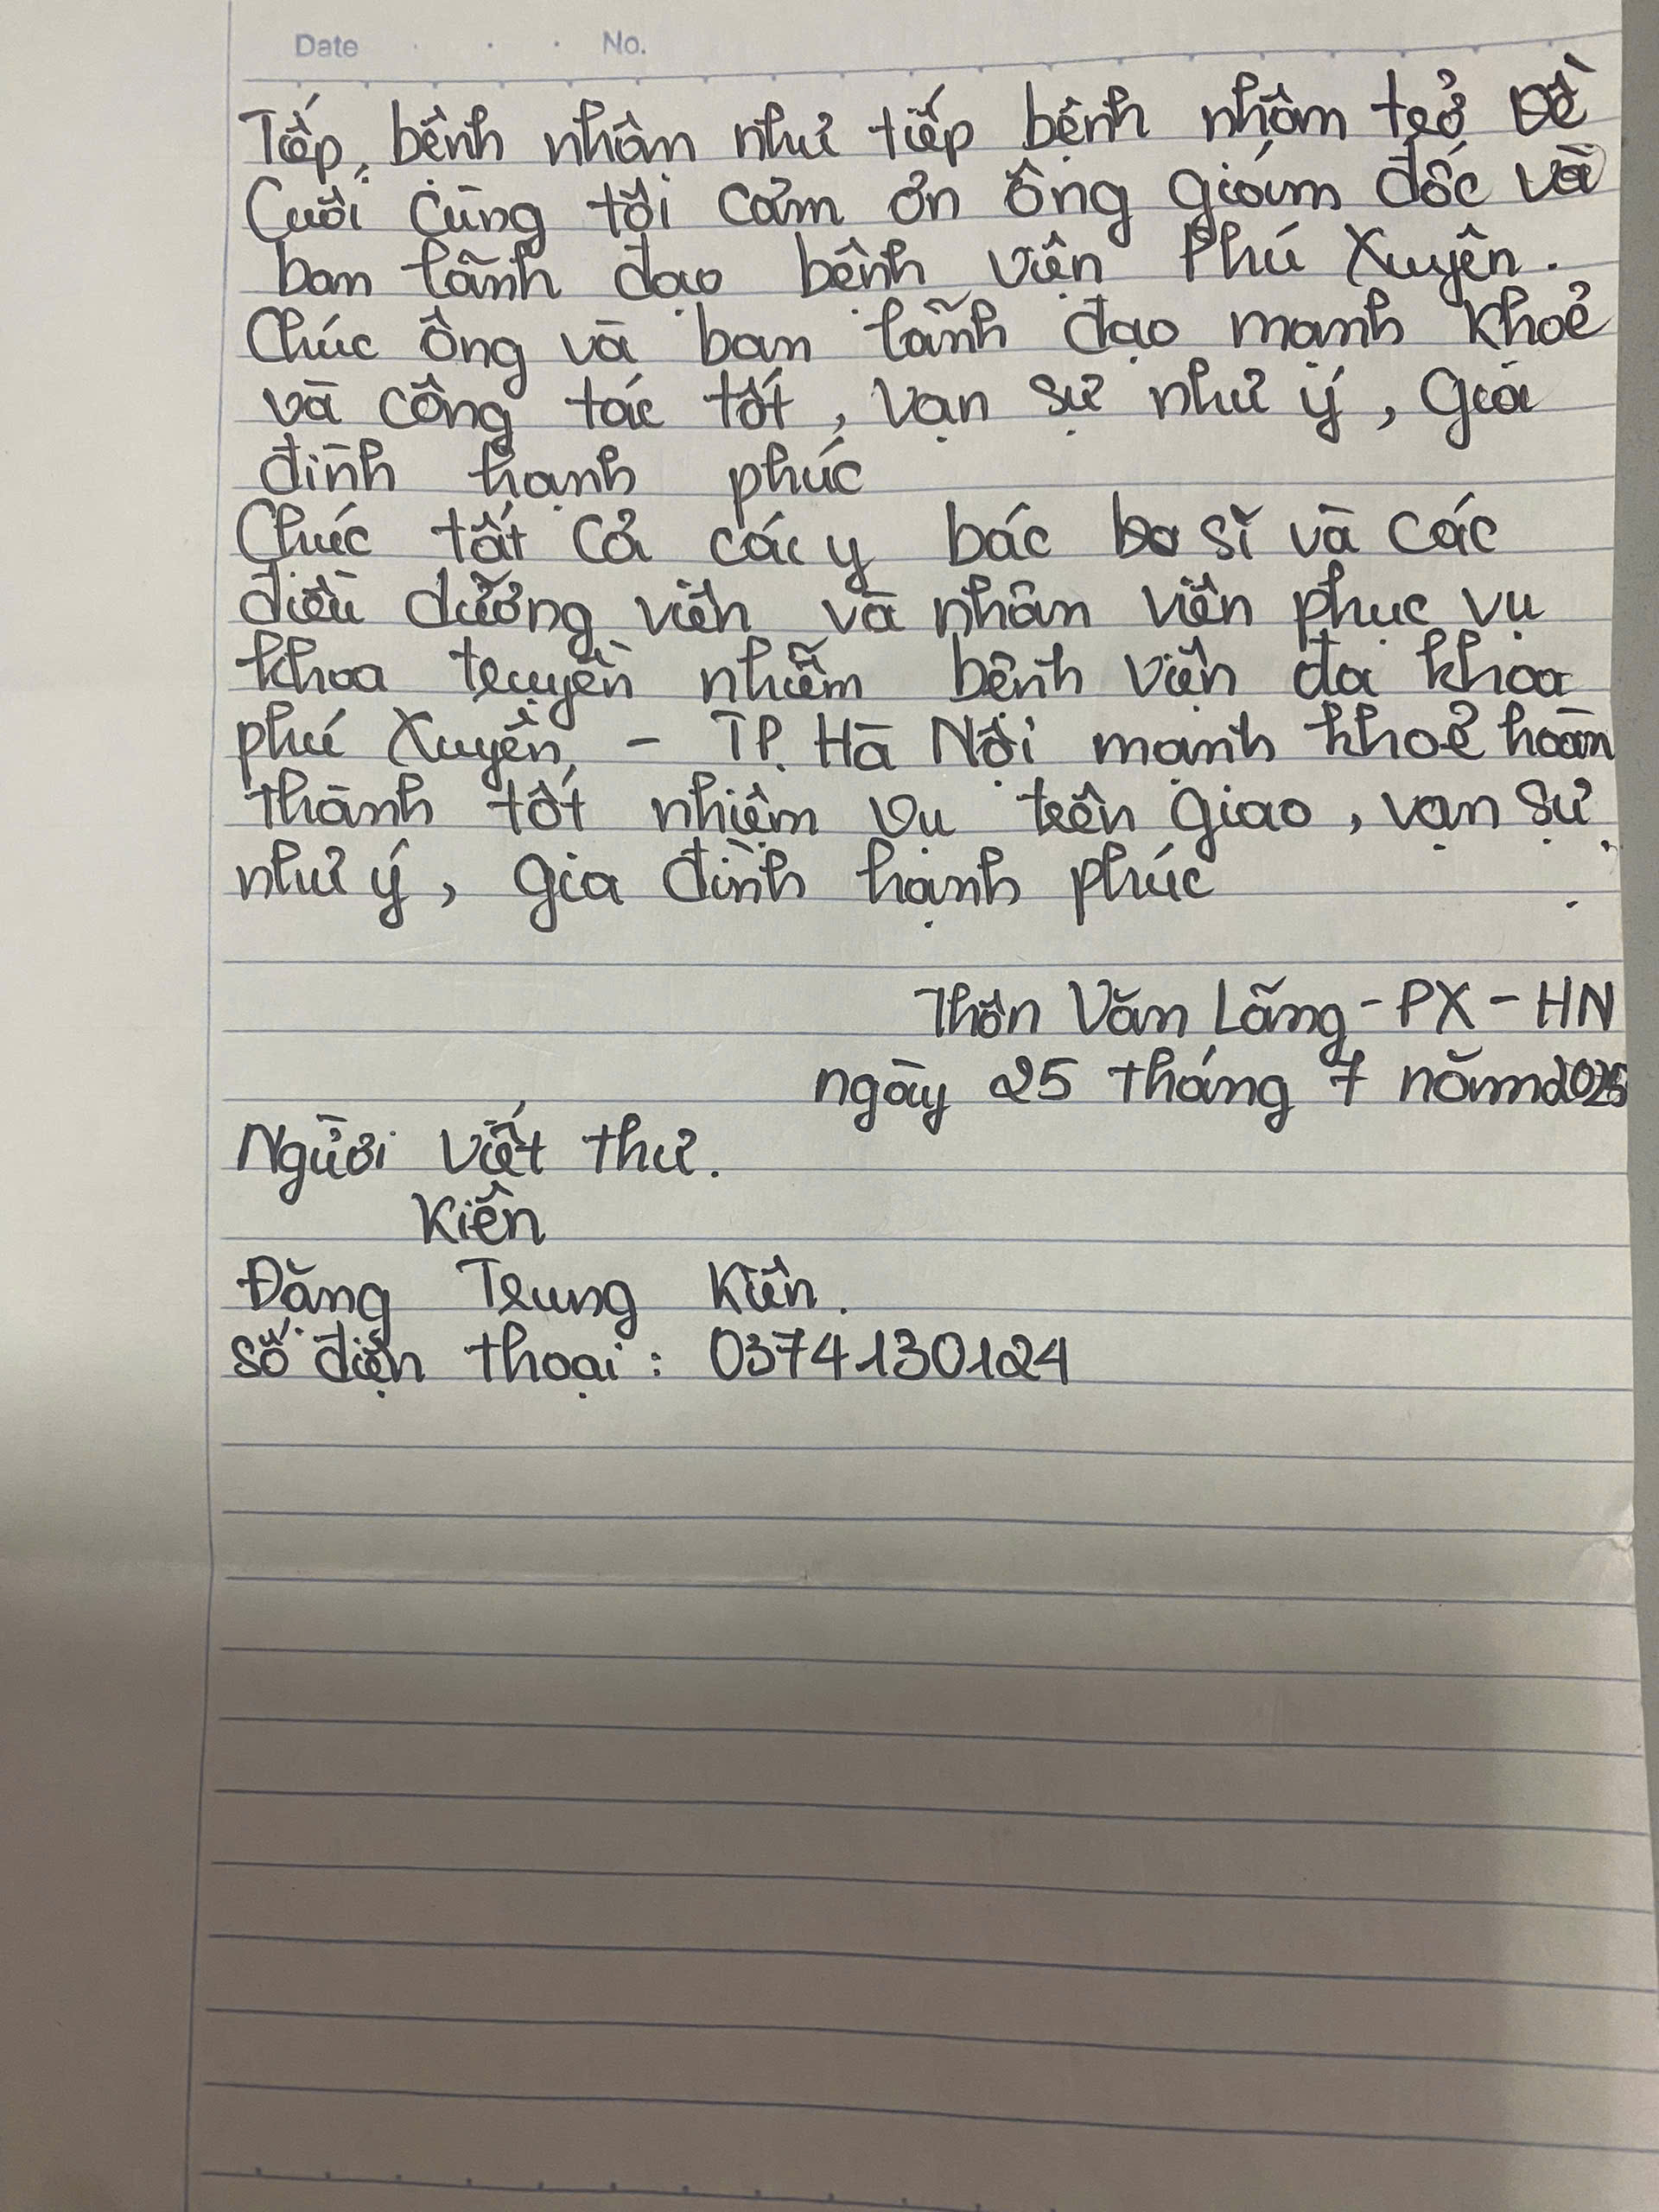 Date No.
Tiếp bệnh nhân như tiếp bệnh nhân trở về
Cuối cùng tôi cảm ơn ông giám đốc và
ban lãnh đạo bệnh viện Phú Xuyên.
Chúc ông và ban lãnh đạo mạnh khoẻ
và công tác tốt, vạn sự như ý, gia
đình hạnh phúc
Chúc tất cả các y bác sĩ và các
điều dưỡng viên và nhân viên phục vụ
khoa truyền nhiễm bệnh viện đa khoa
phú Xuyên - TP. Hà Nội mạnh khoẻ hoàn
thành tốt nhiệm vụ trên giao, vạn sự
như ý, gia đình hạnh phúc
Thôn Văn Lãng - PX - HN
ngày 25 tháng 7 năm 2025
Người viết thư.
Kiên
Đặng Trung Kiên.
số điện thoại: 0374130124